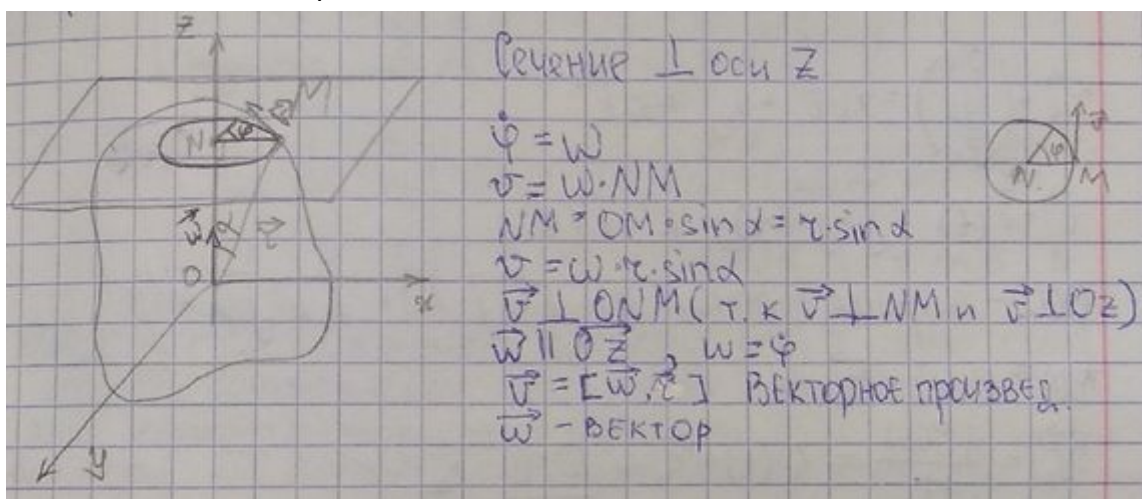 Z
N φ v⃗ M
w⃗ α r⃗
O
x
y
Сечение ⊥ оси Z
φ̇ = w
v = w·NM
NM = OM·sin α = r·sin α
v = w·r·sin α
v⃗ ⊥ ONM (т.к v⃗ ⊥ NM и v⃗ ⊥ Oz)
w⃗ || Oz⃗, w = φ̇
v⃗ = [w⃗, r⃗] Векторное произвед.
w⃗ - вектор
v⃗
φ
N M